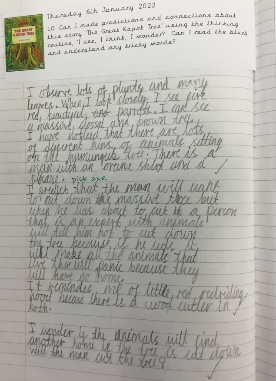 Thursday 6th January 2022
LO: Can I make predictions and connections about
this story 'The Great Kapok Tree' using the thinking
routine, 'I see, I think, I wonder?' Can I read the blurb
and understand any tricky words?
I observe lots of plants and many
leaves. When I look closely, I see five
red, beautiful, parrots. I can see
a massive, giant, dark, brown tree.
I have noticed that there are lots
of different kinds of animals sitting
on the humungus tree. There is a
man with an orange shirt and a
pick axe.
I predict that the man will want
to cut down the massive tree but
when he was about to cut it a person
that is an expert with animals
will tell him not to cut down
the tree because if he cuts it,
will make all the animals that
live there will panic because they
will have no home.
It reminds me of little, red, riding
hood because there is a wood cutter in
both.
I wonder if the animals will find
another home if the tree is cut down
Will the man cut the tree?